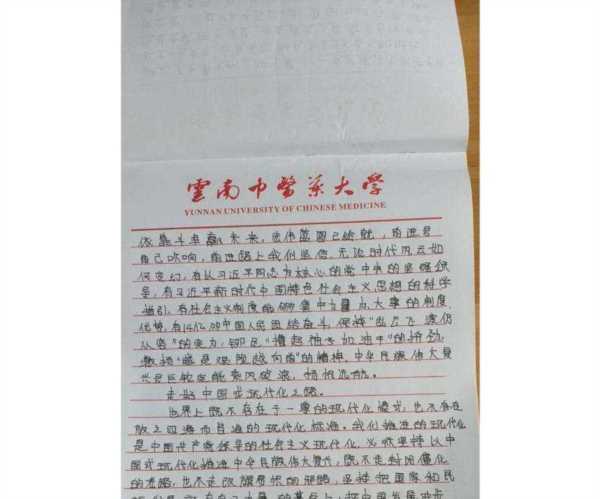 雲南中醫藥大學
YUNNAN UNIVERSITY OF CHINESE MEDICINE
依靠斗争赢未来。宏伟蓝图已绘就，前进号
角已吹响，前进路上我们坚信，无论时代风云如
何变幻，有以习近平同志为核心的党中央的坚强领
导，有习近平新时代中国特色社会主义思想的科学
指引，有社会主义制度能够集中力量办大事的制度
优势，有14亿中国人民团结奋斗，保持“乱云飞渡仍
从容”的定力，铆足“撸起袖子加油干”的拼劲，
激扬“越是艰险越向前”的精神，中华民族伟大复
兴巨轮定能乘风破浪，扬帆远航。
走好中国式现代化之路。
世界上既不存在定于一尊的现代化模式，也不存在
放之四海而皆准的现代化标准。我们推进的现代化
是中国共产党领导的社会主义现代化，必须坚持以中
国式现代化推进中华民族伟大复兴，既不走封闭僵化
的老路，也不走改旗易帜的邪路，坚持把国家和民